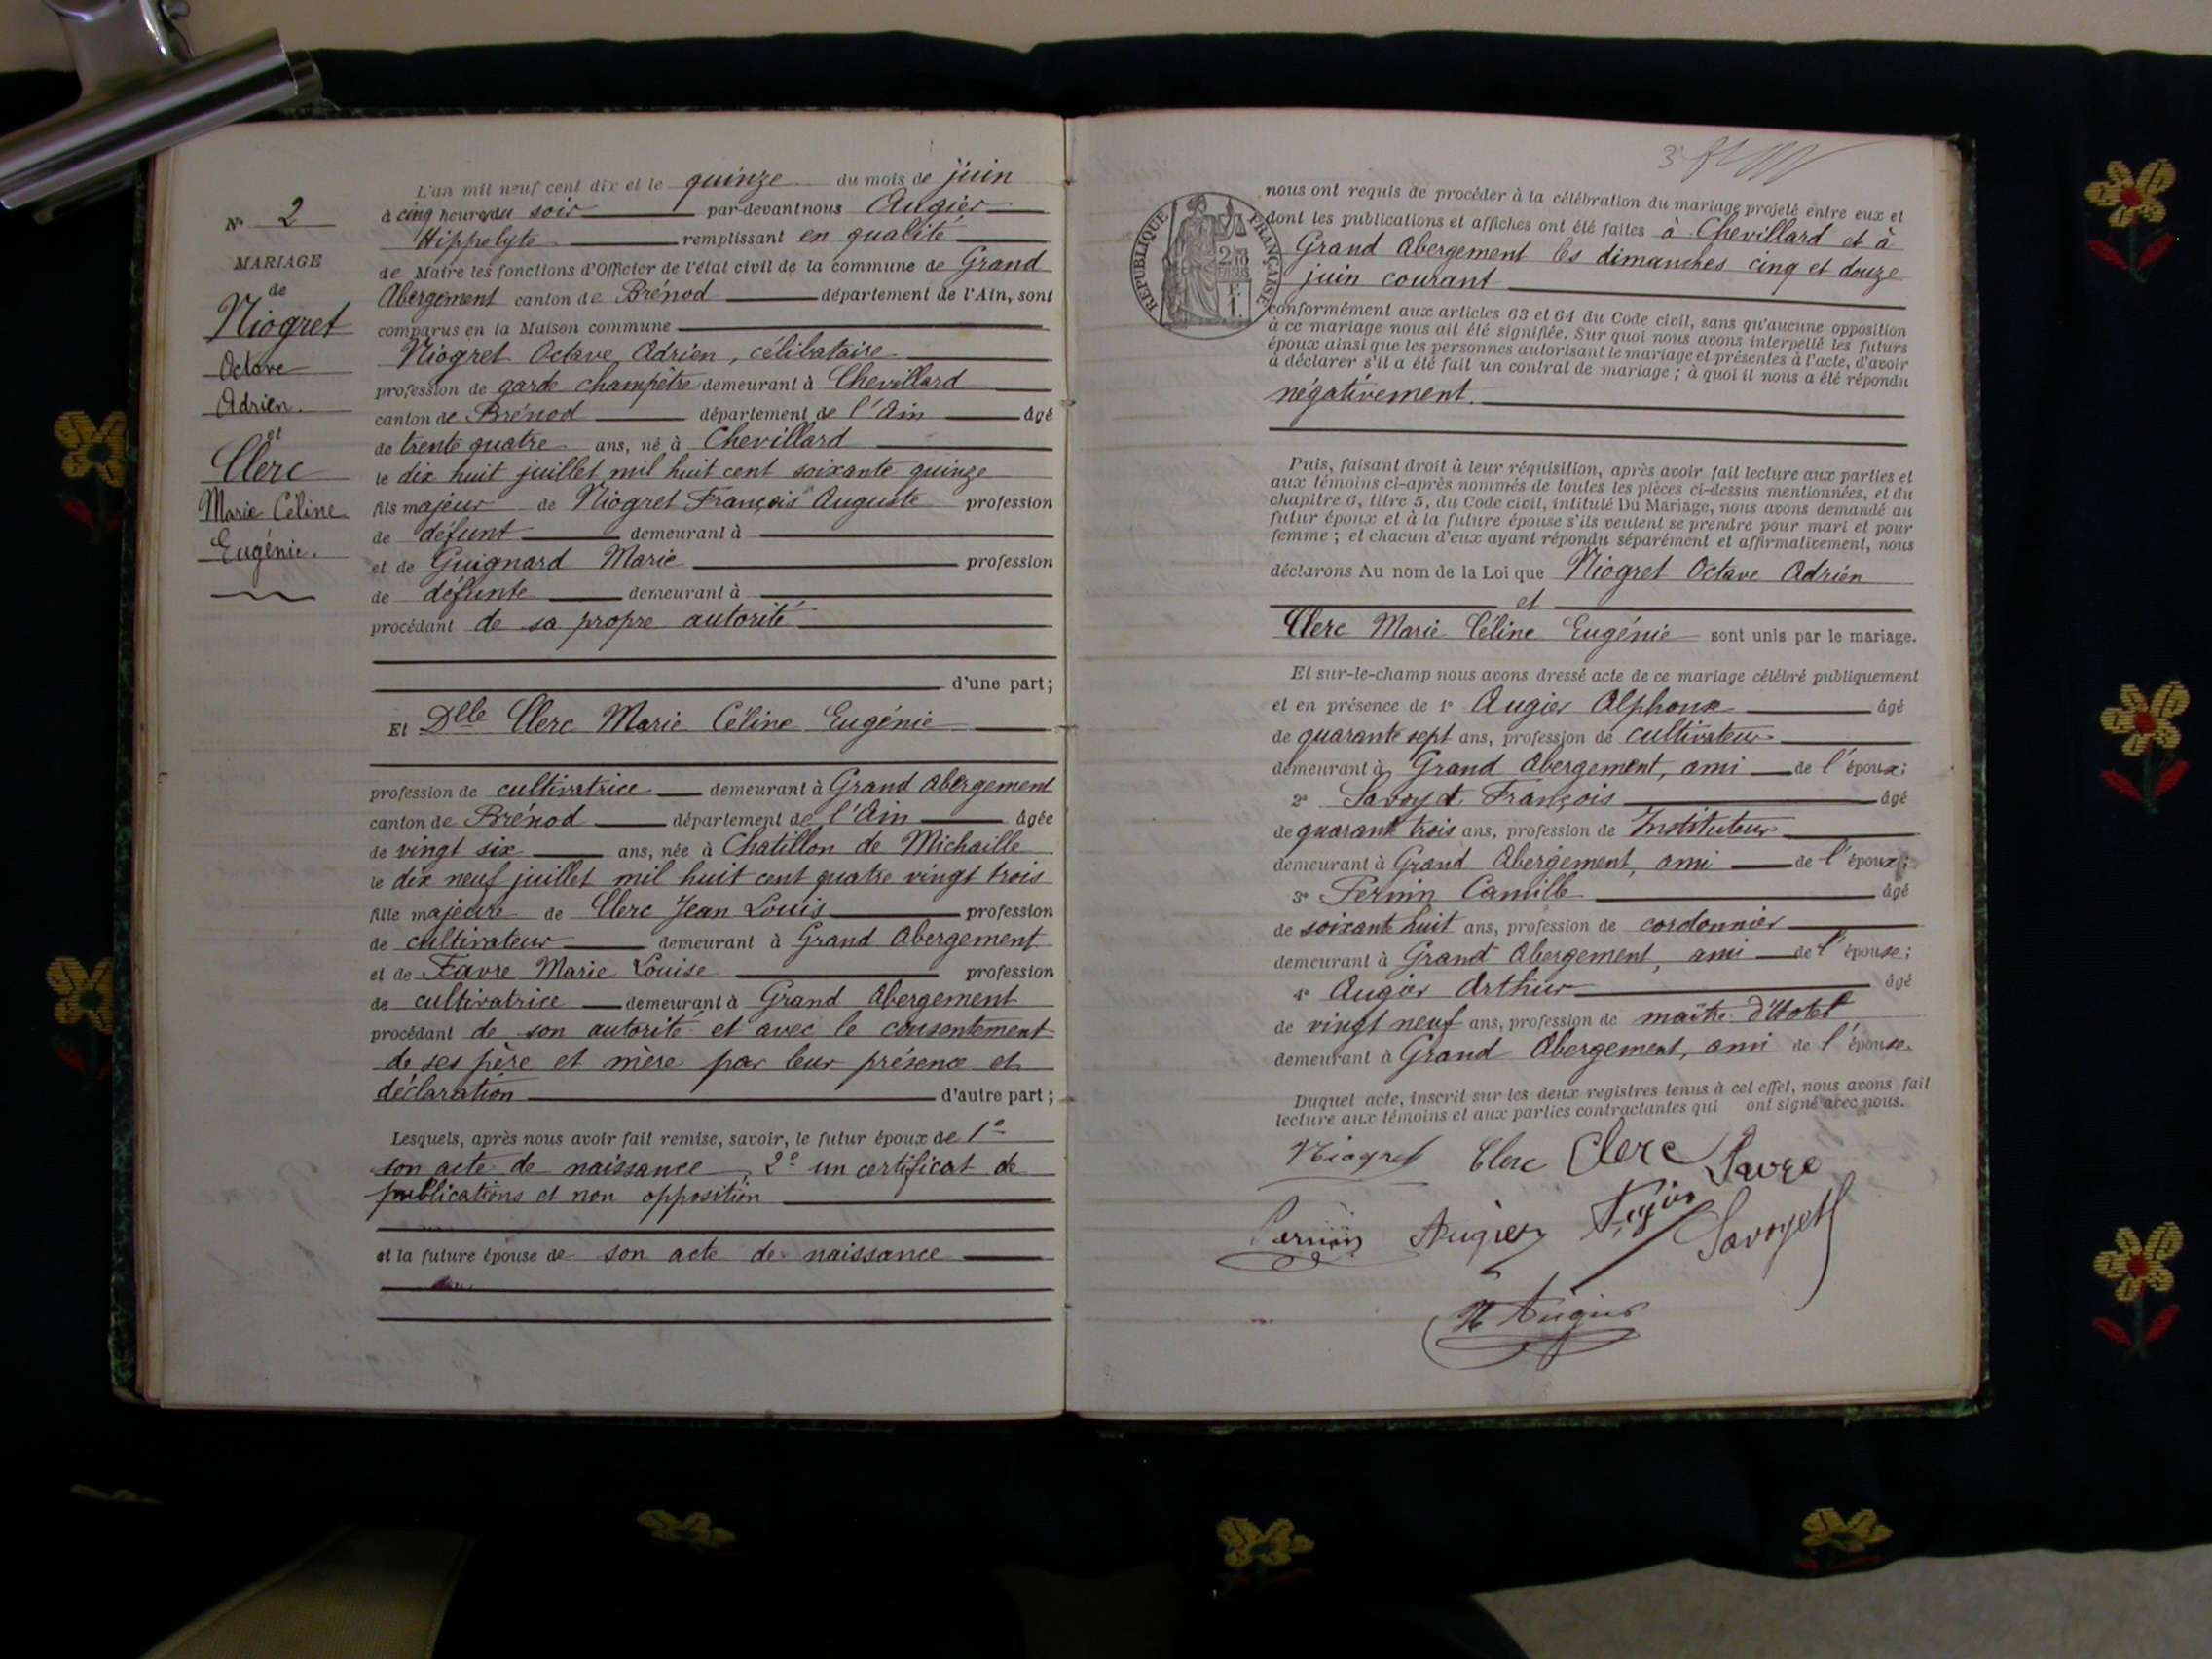 N° 2
MARIAGE
de
Niogret
Octave
Adrien.
et
Clerc
Marie Céline
Eugénie.
L'an mil neuf cent dix et le quinze du mois de juin
à cinq heures du soir par-devant nous Augier
Hippolyte remplissant en qualité
de Maire les fonctions d'Officier de l'état civil de la commune de Grand
Abergement canton de Brénod département de l'Ain, sont
comparus en la Maison commune
Niogret Octave Adrien, célibataire
profession de garde champêtre demeurant à Chevillard
canton de Brénod département de l'Ain âgé
de trente quatre ans, né à Chevillard
le dix huit juillet mil huit cent soixante quinze
fils majeur de Niogret François Auguste profession
de défunt demeurant à
et de Guignard Marie profession
de défunte demeurant à
procédant de sa propre autorité
d'une part;
Et Dlle Clerc Marie Céline Eugénie
profession de cultivatrice demeurant à Grand Abergement
canton de Brénod département de l'Ain âgée
de vingt six ans, née à Chatillon de Michaille
le dix neuf juillet mil huit cent quatre vingt trois
fille majeure de Clerc Jean Louis profession
de cultivateur demeurant à Grand Abergement
et de Favre Marie Louise profession
de cultivatrice demeurant à Grand Abergement
procédant de son autorité et avec le consentement
de ses père et mère par leur présence et
déclaration d'autre part;
Lesquels, après nous avoir fait remise, savoir, le futur époux de 1°
son acte de naissance, 2° un certificat de
publications et non opposition
et la future épouse de son acte de naissance
RÉPUBLIQUE FRANÇAISE
nous ont requis de procéder à la célébration du mariage projeté entre eux et
dont les publications et affiches ont été faites à Chevillard et à
Grand Abergement les dimanches cinq et douze
juin courant
conformément aux articles 63 et 64 du Code civil, sans qu'aucune opposition
à ce mariage nous ait été signifiée. Sur quoi nous avons interpellé les futurs
époux ainsi que les personnes autorisant le mariage et présentes à l'acte, d'avoir
à déclarer s'il a été fait un contrat de mariage; à quoi il nous a été répondu
négativement.
Puis, faisant droit à leur réquisition, après avoir fait lecture aux parties et
aux témoins ci-après nommés de toutes les pièces ci-dessus mentionnées, et du
chapitre 6, titre 5, du Code civil, intitulé Du Mariage, nous avons demandé au
futur époux et à la future épouse s'ils veulent se prendre pour mari et pour
femme; et chacun d'eux ayant répondu séparément et affirmativement, nous
déclarons Au nom de la Loi que Niogret Octave Adrien
et
Clerc Marie Céline Eugénie sont unis par le mariage.
Et sur-le-champ nous avons dressé acte de ce mariage célébré publiquement
et en présence de 1° Augier Alphonse âgé
de quarante sept ans, profession de cultivateur
demeurant à Grand Abergement, ami de l'époux;
2° Savoyet François âgé
de quarante trois ans, profession de Instituteur
demeurant à Grand Abergement, ami de l'époux;
3° Pernin Camille âgé
de soixante huit ans, profession de cordonnier
demeurant à Grand Abergement, ami de l'épouse;
4° Augier Arthur âgé
de vingt neuf ans, profession de maître d'Hotel
demeurant à Grand Abergement, ami de l'épouse.
Duquel acte, inscrit sur les deux registres tenus à cet effet, nous avons fait
lecture aux témoins et aux parties contractantes qui ont signé avec nous.
Niogret Clerc Clerc Favre
Pernin Augier Augier Savoyet
H Augier